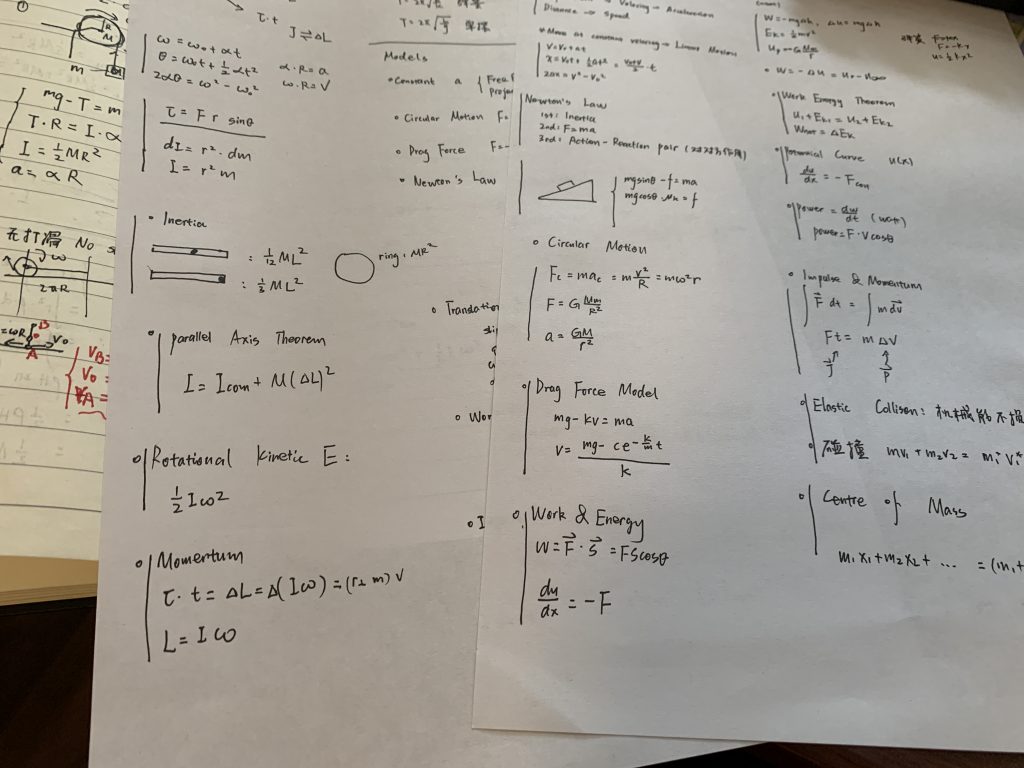 ①
R
M
m
mg - T = m
T · R = I · α
I = ½MR²
a = α R
无打滑 No
ω
2πR
B
A
V₀
V_B =
V₀ =
V_A =
τ · t
J ⇌ ΔL
ω = ω₀ + αt
θ = ω₀t + ½αt²    α · R = a
2αθ = ω² - ω₀²    ω · R = V
τ = F r sinθ
dI = r² · dm
I = r² m
Inertia
: 1/12 ML²
: 1/3 ML²
ring : MR²
parallel Axis Theorem
I = Icom + M(ΔL)²
Rotational Kinetic E :
½Iω²
Momentum
τ · t = ΔL = Δ(Iω) = (r₂ m) V
L = Iω
Models
Constant a { Free
proje
Circular Motion F=
Drag Force F=-
Newton's Law
Translation
Wor
I
Velocity → Acceleration
Distance → Speed
Move at constant velocity → Linear Motion
V = V₀ + at
2ax = V² - V₀²
Newton's Law
1st: Inertia
2nd: F = ma
3rd: Action - Reaction pair
mg sinθ - f = ma
mg cosθ · μₖ = f
Circular Motion
Fc = mac = m V²/R = mω²r
F = G Mm/R²
a = GM/r²
Drag Force Model
mg - kv = ma
V = (mg - ce^(-k/m t))/k
Work & Energy
W = F⃗ · s⃗ = FS cosθ
du/dx = -F
W = -mgΔh, Δu = mgΔh
Ek = ½mv²
F = -kx
u = ½kx²
Work Energy Theorem
U₁ + Ek₁ = U₂ + Ek₂
Wnet = ΔEk
potential Curve u(x)
du/dx = -Fcon
power = dw/dt (watt)
power = F · V cosθ
Impulse & Momentum
∫ F⃗ dt = ∫ m dv⃗
Ft = m ΔV
J P
Elastic Collison: 机械能不损
碰撞 mv₁ + m₂v₂ = m₁ v₁'
Centre of Mass
m₁x₁ + m₂x₂ + ... = (m₁ +